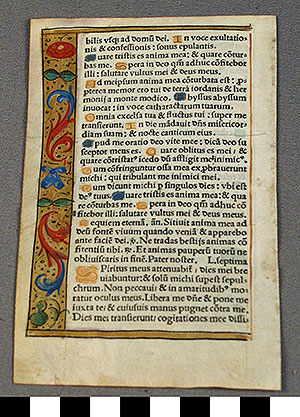 bilis vsqȝ ad domū dei. In voce exultatio-
nis & confessionis : sonus epulantis.
Quare tristis es anima mea : & quare cōtur-
bas me. Spera in deo qm̄ adhuc cōfitebor
illi : salutare vultus mei & deus meus.
Ad meipsum anima mea cōturbata est : p
pterea memor ero tui de terra iordanis & her
monij a monte modico. Abyssus abyssum
inuocat : in voce cataractarum tuarum.
Omnia excelsa tua & fluctus tui : super me
transierunt. In die mādauit dn̄s misericor
diam suam : & nocte canticum eius.
Apud me oratio deo vite mee : dicā deo su
sceptor meus es. Quare oblitus es mei : &
quare cōtristatꝰ īcedo dū affligit me īnimicꝰ.
Dum cōfringuntur ossa mea exprobrauerunt
michi : qui tribulant me inimici mei.
Dum dicunt michi p singulos dies : vbi est
deꝰ tuus. Quare tristis es anima mea : & qua
re cōturbas me. Spera in deo qm̄ adhuc cō
fitebor illi : salutare vultus mei & deus meus.
Requiem eternā. añ. Sitiuit anima mea ad
deū fontē viuum quando veniā & apparebo
ante faciē dei. ꝟ. Ne tradas bestijs animas cō
fitentiū tibi. ꝶ. Et animas pauperū tuorū ne
obliuiscaris in finē. Pater noster. L. septima
Spiritus meus attenuabitr̄ : dies mei bre
uiabuntur : & solū michi superest sepul-
chrum. Non peccaui & in amaritudibꝰ mo
ratur oculus meus. Libera me dn̄e & pone me
iuxta te : & cuiusuis manus pugnet cōtra me.
Dies mei transierunt : cogitationes mee dissi-